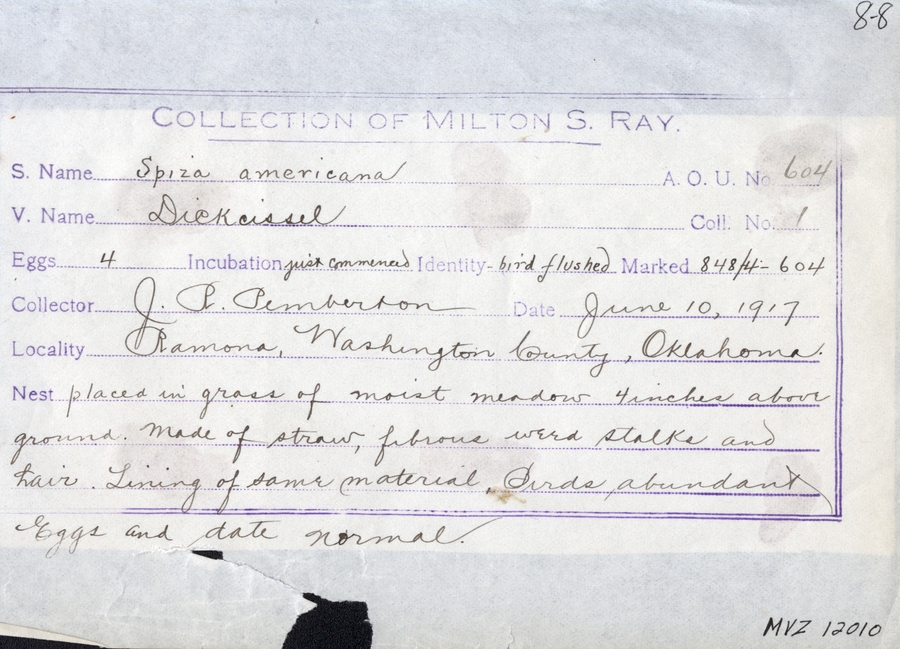 8-8
COLLECTION OF MILTON S. RAY.
S. Name Spiza americana A. O. U. No. 604
V. Name Dickcissel Coll. No. 1
Eggs 4 Incubation just commenced Identity- bird flushed Marked 848/4-604
Collector J. R. Pemberton Date June 10, 1917
Locality Ramona, Washington County, Oklahoma.
Nest placed in grass of moist meadow 4 inches above
ground. Made of straw, fibrous weed stalks and
hair. Lining of same material. Birds abundant
Eggs and date normal.
MVZ 12010